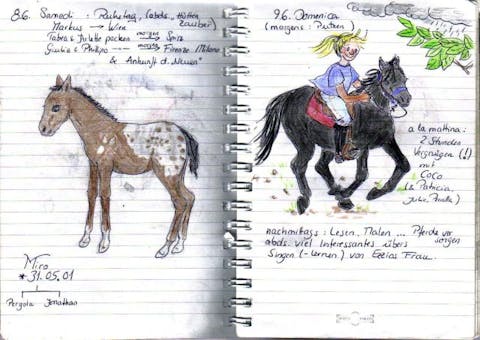 8.6. Samedi : Ruhetag, (abds. "Hütten
zauber")
Markus → Wien
Tabea & Juliette packen morgen → Spiez
Giulia & Philipp morgen → Firenze, Milano
& Ankunft d. "Neuen"
Miro
* 31.05.01
Pergola Jonathan
9.6. Domenica
(morgens : Putzen)
a la mattina :
2 Stunden
Vergnügen (!)
mit
COCO
(& Patricia,
nachmittags : Lesen, Malen ... Pferde ver
sorgen
abds. viel Interessantes übers
Singen (-Lernen) von Frau.